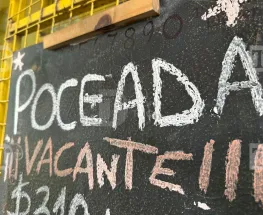 *POCEADA
¡¡VACANTE!!
$310